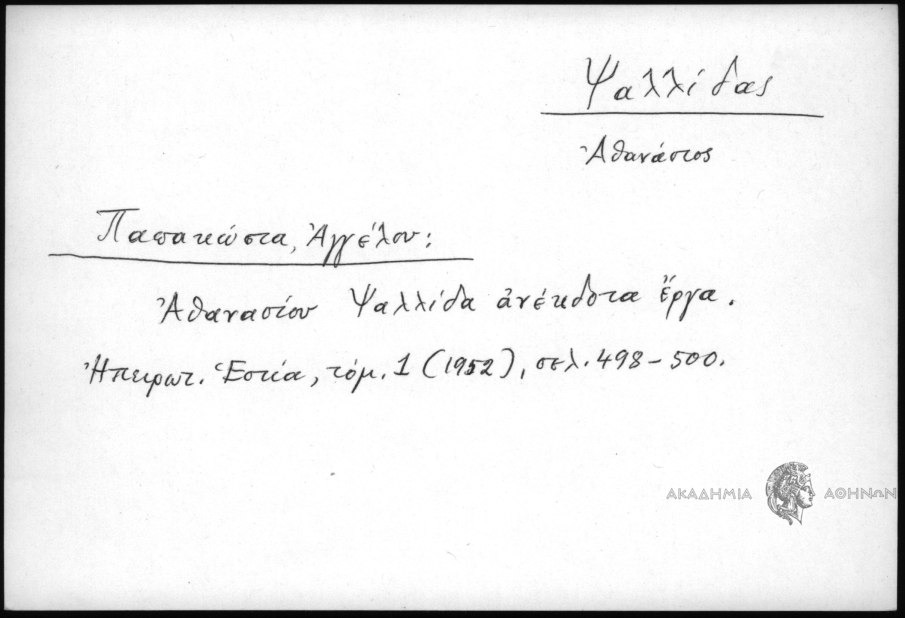 Ψαλλίδας
Ἀθανάσιος
Παπακώστα, Ἀγγέλου:
Ἀθανασίου Ψαλλίδα ἀνέκδοτα ἔργα.
Ἠπειρωτ. Ἑστία, τόμ. 1 (1952), σελ. 498-500.
ΑΚΑΔΗΜΙΑ ΑΘΗΝΩΝ